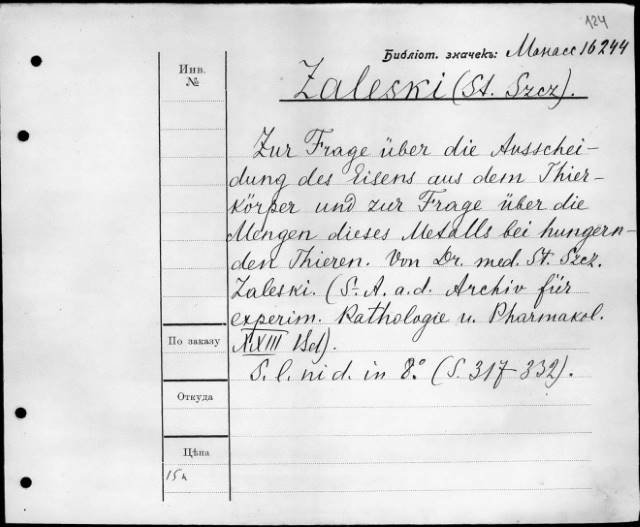 124
Библіот. значекъ: Манасс 16244
Инв.
№
Zaleski (St. Szcz).
Zur Frage über die Ausschei-
dung des Eisens aus dem Thier-
körper und zur Frage über die
Mengen dieses Metalls bei hungern-
den Thieren. Von Dr. med. St. Szcz.
Zaleski. (S.-A. a. d. Archiv für
experim. Pathologie u. Pharmakol.
XXIII Bd).
S. l. ni d. in 8.° (S. 317-332).
По заказу
Откуда
Цѣна
15 к